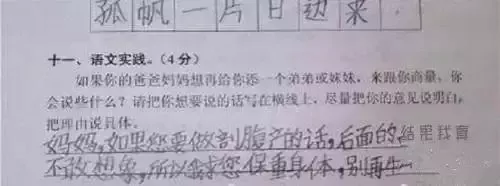 孤帆一片日边来.
十一、语文实践。(4分)
如果你的爸爸妈妈想再给你添一个弟弟或妹妹，来跟你商量，你
会说些什么？请把你想要说的话写在横线上，尽量把你的意见说明白，
把理由说具体。
妈妈，如果您要做剖腹产的话，后面的结果我真
不敢想象，所以请您保重身体，别再生…